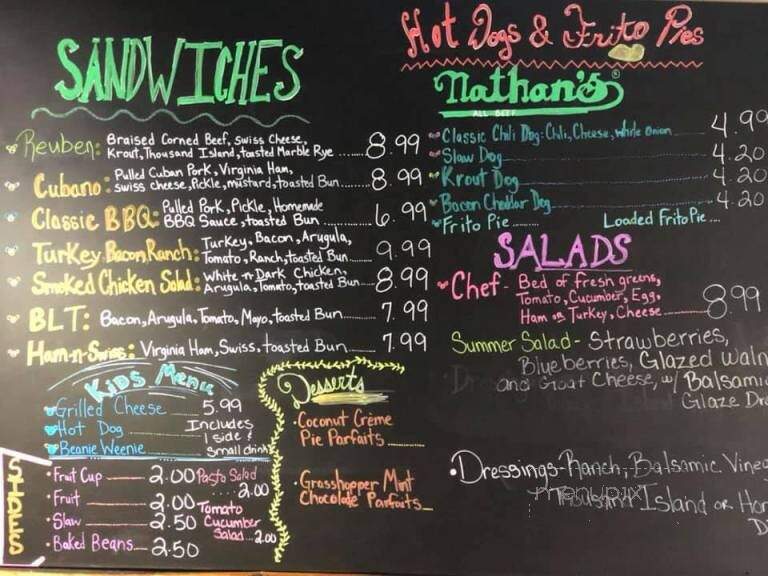 SANDWICHES
Reuben: Braised Corned Beef, Swiss Cheese,
Krout, Thousand Island, toasted Marble Rye ........ 8.99
Cubano: Pulled Cuban Pork, Virginia Ham,
swiss cheese, Pickle, mustard, Toasted Bun..... 8.99
Classic BBQ: Pulled Pork, Pickle, Homemade
BBQ Sauce, toasted Bun ......... 6.99
Turkey Bacon Ranch: Turkey, Bacon, Arugula,
Tomato, Ranch, toasted Bun ...... 9.99
Smoked Chicken Salad: White-n-Dark Chicken,
Arugula, Tomato, toasted Bun ..... 8.99
BLT: Bacon, Arugula, Tomato, Mayo, toasted Bun ... 7.99
Ham-n-Swiss: Virginia Ham, Swiss, toasted Bun ..... 7.99
Kids Menu
Grilled Cheese 5.99
Hot Dog Includes
1 side &
Beanie Weenie small drink
SIDES
Fruit Cup 2.00
Fruit 2.00
Slaw 2.50
Baked Beans 2.50
Pasta Salad
... 2.00
Tomato
Cucumber
Salad... 2.00
Desserts
Coconut Crème
Pie Parfaits
Grasshopper Mint
Chocolate Parfaits
Hot Dogs & Frito Pies
Nathan's®
ALL BEEF
Classic Chili Dog: Chili, Cheese, white onion 4.99
Slaw Dog 4.20
Krout Dog 4.20
Bacon Cheddar Dog 4.20
Frito Pie ...... Loaded Frito Pie ...
SALADS
Chef - Bed of Fresh greens,
Tomato, Cucumber, Egg,
Ham or Turkey, Cheese 8.99
Summer Salad - Strawberries,
Blueberries, Glazed Waln
and Goat Cheese, w/ Balsamic
Glaze Dr
Dressings - Ranch, Balsamic Vine
Thousand Island or Hon
D
menupix